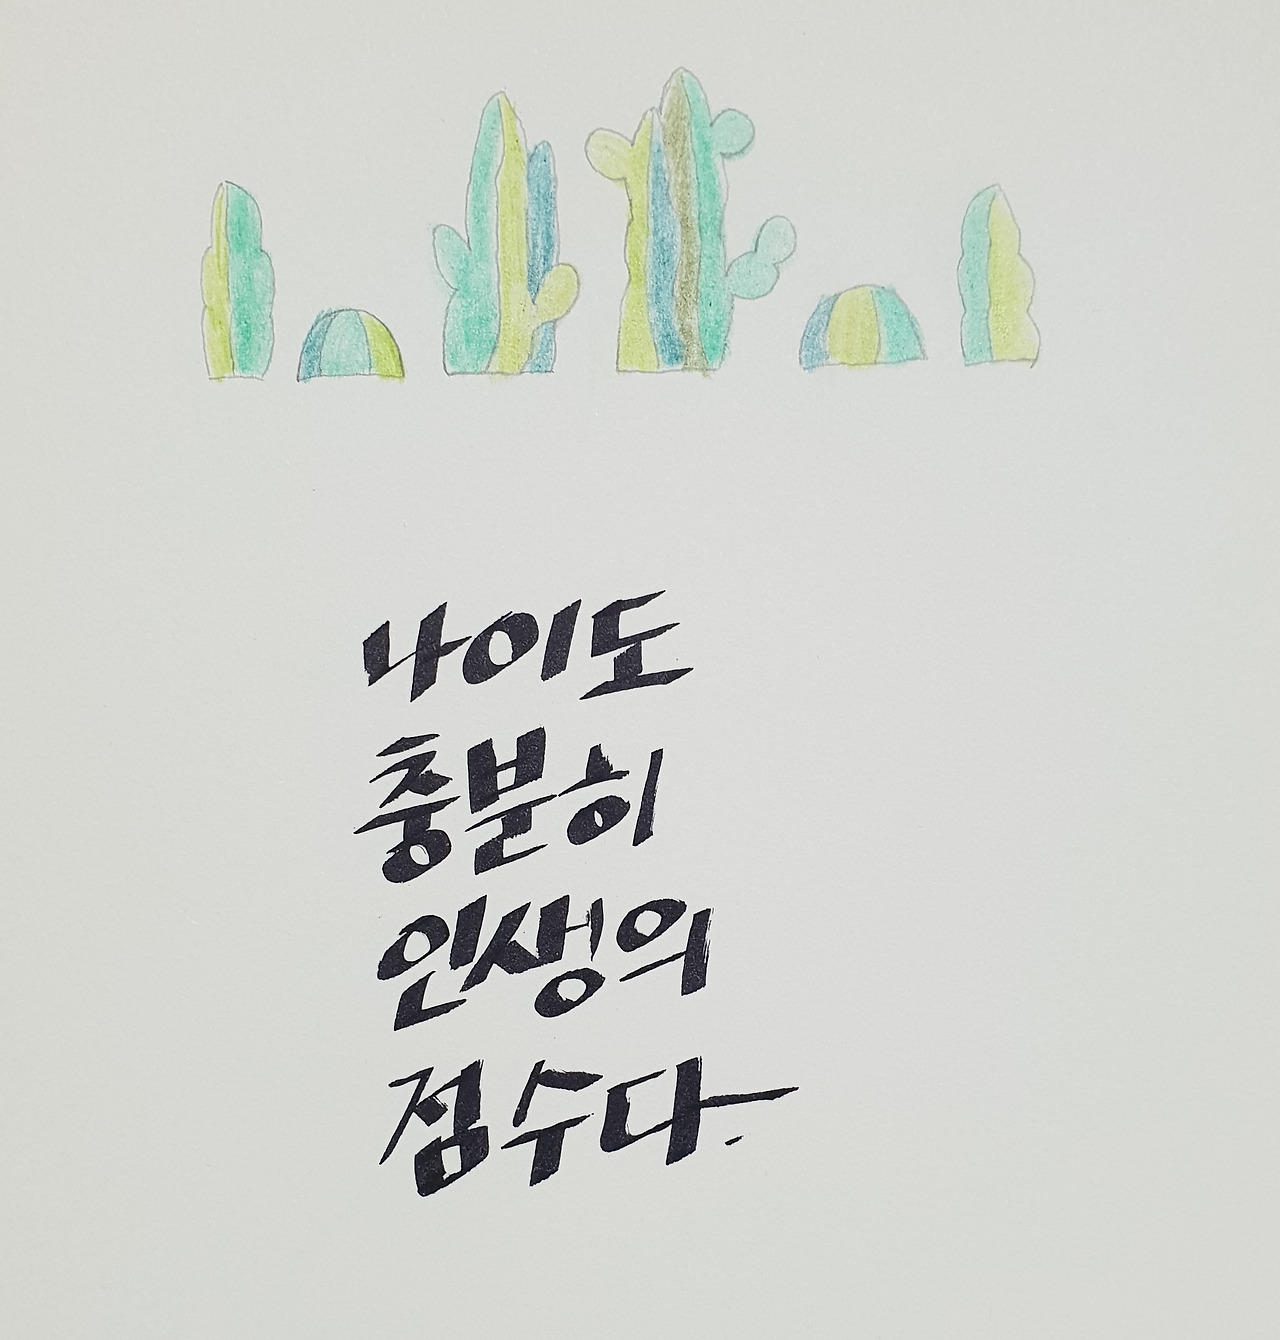 나이도
충분히
인생의
점수다.